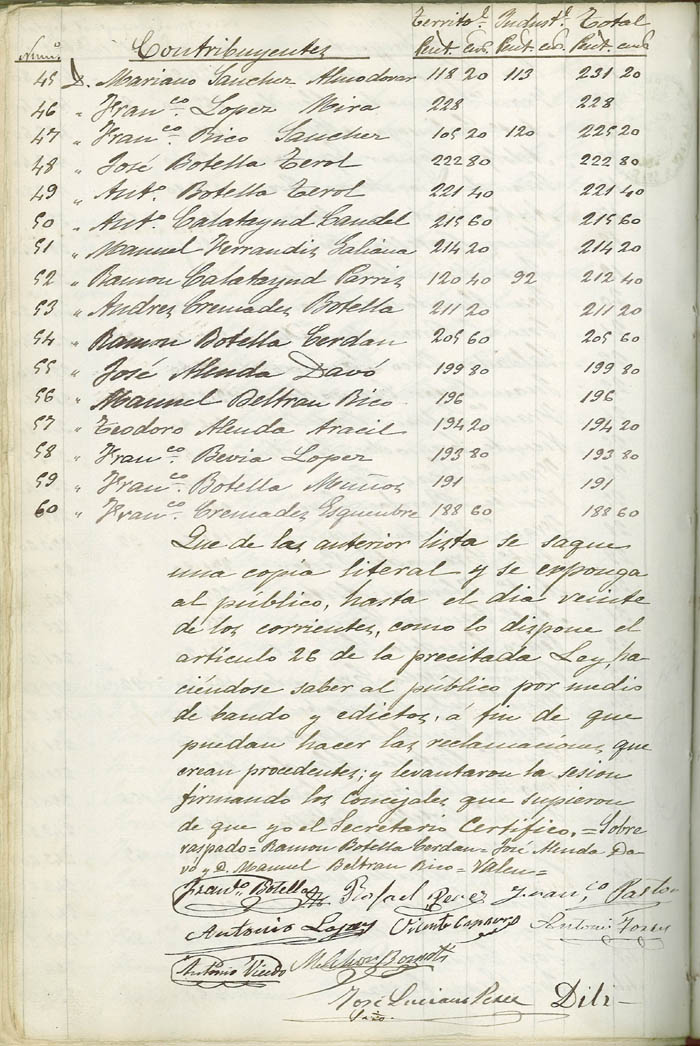 Territ.l Indust.l Total
Num.o Contribuyentes Pent. cns. Pent. cns. Pent. cns
45 D. Mariano Sanchez Almodovar 118 20 113 231 20
46 " Fran.co Lopez Mira 228 228
47 " Fran.co Rico Sanchez 105 20 120 225 20
48 " José Botella Terol 222 80 222 80
49 " Ant.o Botella Terol 221 40 221 40
50 " Ant.o Calatayud Candel 215 60 215 60
51 " Manuel Ferrandiz Galiana 214 20 214 20
52 " Ramon Calatayud Parris 120 40 92 212 40
53 " Andres Cremades Botella 211 20 211 20
54 " Ramon Botella Cerdan 205 60 205 60
55 " José Alenda Davó 199 80 199 80
56 " Manuel Beltran Rico 196 196
57 " Teodoro Alenda Aracil 194 20 194 20
58 " Fran.co Bevia Lopez 193 80 193 80
59 " Fran.co Botella Muños 191 191
60 " Fran.co Cremades Esquembre 188 60 188 60
Que de las anterior lista se saque
una copia literal y se exponga
al público, hasta el dia veinte
de los corrientes, como lo dispone el
artículo 26 de la precitada Ley, ha-
ciéndose saber al público por medio
de bando y edictos, á fin de que
puedan hacer las reclamaciones que
crean procedentes; y levantaron la sesion
firmando los Concejales que supieron
de que yo el Secretario Certifico. = Sobre
raspado = Ramon Botella Cerdan = José Alenda Da-
vó y D. Manuel Beltran Rico = Valen =
Fran.co Botella Rafael Perez Fran.co Pastor
Antonio Lopez Vicente Antonio Torres
Antonio Vicedo Melchor
José Luciano Perez Dili-
Srio.